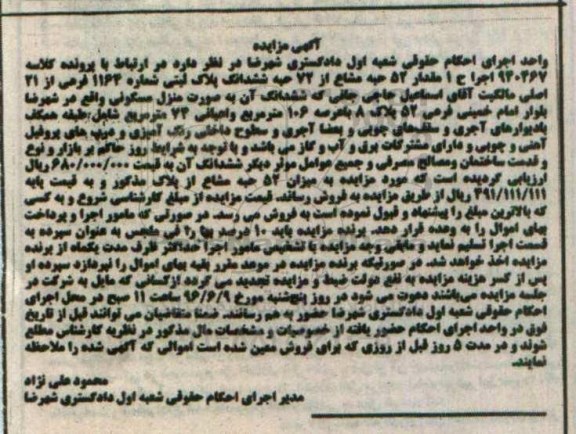 آگهی مزایده
واحد اجرای احکام حقوقی شعبه اول دادگستری شهرضا در نظر دارد در ارتباط با پرونده کلاسه
۹۴۰۴۶۷ اجرا ح ۱ مقدار ۵۲ حبه مشاع از ۷۲ حبه ششدانگ پلاک ثبتی شماره ۱۱۶۴ فرعی از ۲۱
اصلی مالکیت آقای اسماعیل حاجی جانی که ششدانگ آن به صورت منزل مسکونی واقع در شهرضا
بلوار امام خمینی فرعی ۵۲ پلاک ۸ باعرصه ۱۰۶ مترمربع واعیانی ۷۴ مترمربع شامل طبقه همکف
بادیوارهای آجری و سقف‌های چوبی و بعضا آجری و سطوح داخلی رنگ آمیزی و درب های پروفیل
آهنی و چوبی و دارای مشترکات برق و آب و گاز می باشد و با توجه به شرایط روز حاکم بر بازار و نوع
و قدمت ساختمان ومصالح مصرفی و جمیع عوامل موثر دیگر ششدانگ آن به قیمت ۶۸۰/۰۰۰/۰۰۰ ریال
ارزیابی گردیده است که مورد مزایده به میزان ۵۲ حبه مشاع از پلاک مذکور و به قیمت پایه
۴۹۱/۱۱۱/۱۱۱ ریال از طریق مزایده به فروش رساند. قیمت مزایده از مبلغ کارشناسی شروع و به کسی
که بالاترین مبلغ را پیشنهاد و قبول نموده است به فروش می رسد. در صورتی که مامور اجرا و پرداخت
بهای اموال را به وعده قرار دهد. برنده مزایده باید ۱۰ درصد بها را فی المجلس به عنوان سپرده به
قسمت اجرا تسلیم نماید و مابقی وجه مزایده با تشخیص مامور اجرا حداکثر ظرف مدت یکماه از برنده
مزایده اخذ خواهد شد. در صورتیکه برنده مزایده در موعد مقرر بقیه بهای اموال را نپردازد سپرده او
پس از کسر هزینه مزایده به نفع دولت ضبط و مزایده تجدید می گردد ازکسانی که مایل به شرکت در
جلسه مزایده می‌باشند دعوت می شود در روز پنج‌شنبه مورخ ۹۶/۶/۹ ساعت ۱۱ صبح در محل اجرای
احکام حقوقی شعبه اول دادگستری شهرضا حضور به هم رسانند. ضمنا متقاضیان می توانند قبل از تاریخ
فوق در واحد اجرای احکام حضور یافته از خصوصیات و مشخصات مال مذکور در نظریه کارشناس مطلع
شوند و در مدت ۵ روز قبل از روزی که برای فروش معین شده است اموالی که آگهی شده را ملاحظه
نمایند.
محمود علی نژاد
مدیر اجرای احکام حقوقی شعبه اول دادگستری شهرضا